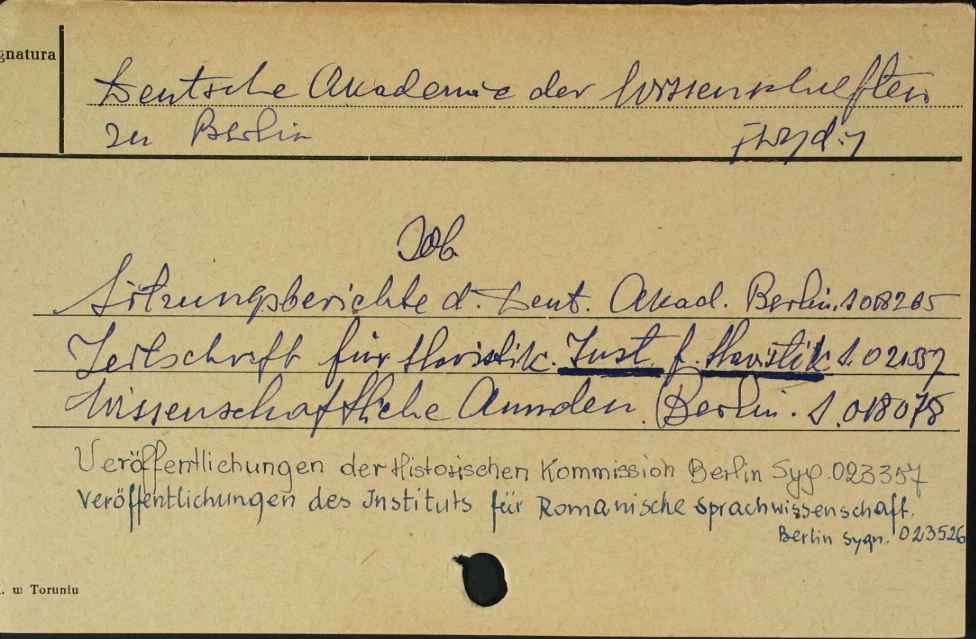 gnatura
Deutsche Akademie der Wissenschaften
zu Berlin
Sitzungsberichte d. Deut. Akad. Berlin. S 018265
Zeitschrift für Slavistik. Inst. f. Slavistik S. 021557
Wissenschaftliche Annalen. (Berlin. S. 018078
Veröffentlichungen der Historischen Kommission Berlin Syg. 023357
Veröffentlichungen des Instituts für Romanische Sprachwissenschaft.
Berlin Sygn. 023526
. w Toruniu